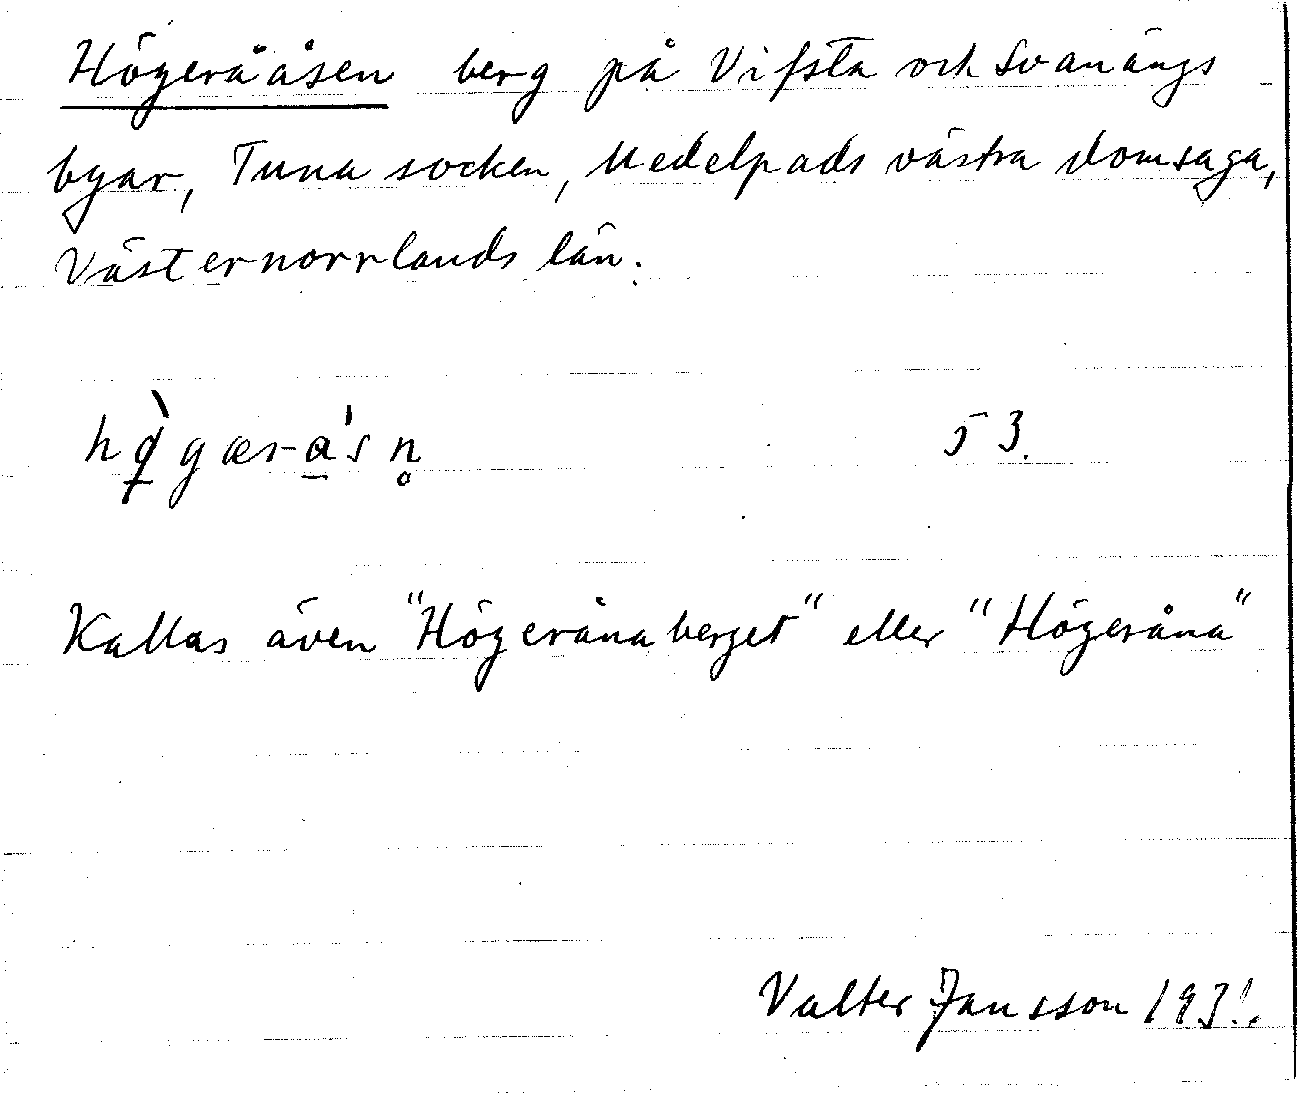 Högerååsen berg på Vifsta och Svanängs
byar, Tuna socken, Medelpads västra domsaga,
Västernorrlands län.
53.
Kallas även "Högerånaberget" eller "Högeråna"
Valter Jansson 1931.